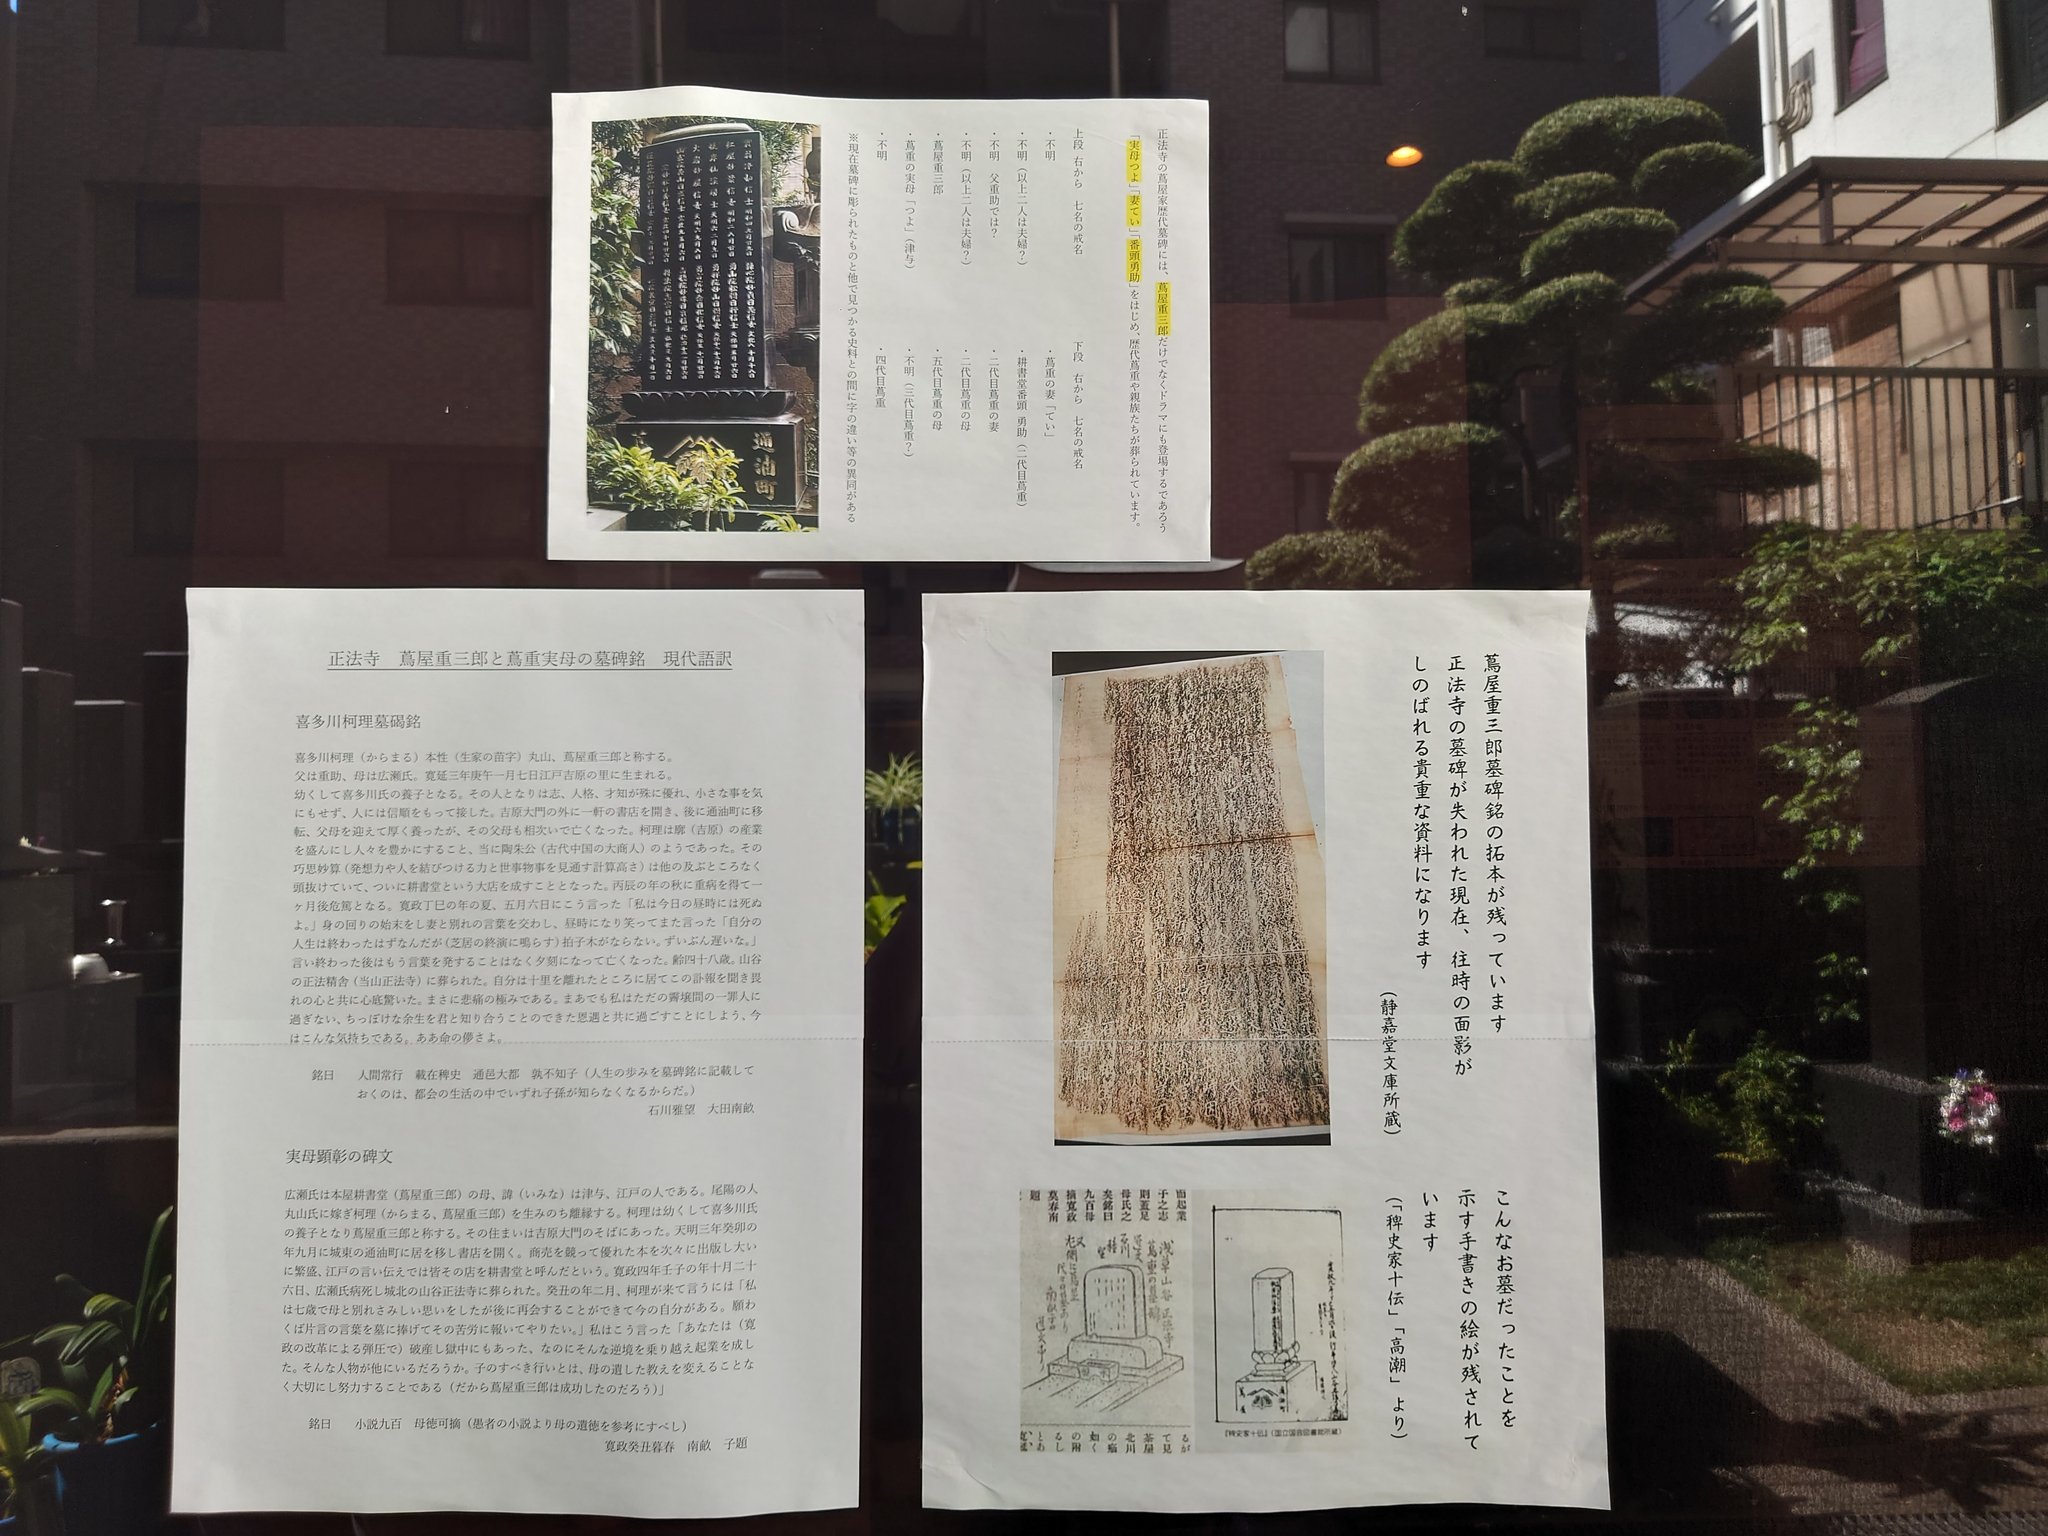 正法寺の蔦屋家歴代墓碑には、蔦屋重三郎だけでなくドラマにも登場するであろう
「実母つよ」「妻てい」「番頭勇助」をはじめ、歴代蔦重や親族たちが葬られています。
上段　右から　七名の戒名
・不明
・不明（以上二人は夫婦？）
・不明　父重助では？
・不明（以上二人は夫婦？）
・蔦屋重三郎
・蔦重の実母「つよ」（津与）
・不明
下段　右から　七名の戒名
・蔦重の妻「てい」
・耕書堂番頭　勇助（二代目蔦重）
・二代目蔦重の妻
・二代目蔦重の母
・五代目蔦重の母
・不明（三代目蔦重？）
・四代目蔦重
※現在墓碑に彫られたものと他で見つかる史料との間に字の違い等の異同がある
通油町
正法寺　蔦屋重三郎と蔦重実母の墓碑銘　現代語訳
喜多川柯理墓碣銘
喜多川柯理（からまる）本性（生家の苗字）丸山、蔦屋重三郎と称する。
父は重助、母は広瀬氏。寛延三年庚午一月七日江戸吉原の里に生まれる。
幼くして喜多川氏の養子となる。その人となりは志、人格、才知が殊に優れ、小さな事を気
にもせず、人には信順をもって接した。吉原大門の外に一軒の書店を開き、後に通油町に移
転、父母を迎えて厚く養ったが、その父母も相次いで亡くなった。柯理は廓（吉原）の産業
を盛んにし人々を豊かにすること、当に陶朱公（古代中国の大商人）のようであった。その
巧思妙算（発想力や人を結びつける力と世事物事を見通す計算高さ）は他の及ぶところなく
頭抜けていて、ついに耕書堂という大店を成すこととなった。丙辰の年の秋に重病を得て一
ヶ月後危篤となる。寛政丁巳の年の夏、五月六日にこう言った「私は今日の昼時には死ぬ
よ。」身の回りの始末をし妻と別れの言葉を交わし、昼時になり笑ってまた言った「自分の
人生は終わったはずなんだが（芝居の終演に鳴らす）拍子木がならない。ずいぶん遅いな。」
言い終わった後はもう言葉を発することはなく夕刻になって亡くなった。齢四十八歳。山谷
の正法精舎（当山正法寺）に葬られた。自分は十里を離れたところに居てこの訃報を聞き畏
れの心と共に心底驚いた。まさに悲痛の極みである。まあでも私はただの霽壌間の一罪人に
過ぎない、ちっぽけな余生を君と知り合うことのできた恩遇と共に過ごすことにしよう、今
はこんな気持ちである。ああ命の儚さよ。
銘曰　人間常行　載在稗史　通邑大都　孰不知子（人生の歩みを墓碑銘に記載して
おくのは、都会の生活の中でいずれ子孫が知らなくなるからだ。）
石川雅望　大田南畝
実母顕彰の碑文
広瀬氏は本屋耕書堂（蔦屋重三郎）の母、諱（いみな）は津与、江戸の人である。尾陽の人
丸山氏に嫁ぎ柯理（からまる、蔦屋重三郎）を生みのち離縁する。柯理は幼くして喜多川氏
の養子となり蔦屋重三郎と称する。その住まいは吉原大門のそばにあった。天明三年癸卯の
年九月に城東の通油町に居を移し書店を開く。商売を競って優れた本を次々に出版し大い
に繁盛、江戸の言い伝えでは皆その店を耕書堂と呼んだという。寛政四年壬子の年十月二十
六日、広瀬氏病死し城北の山谷正法寺に葬られた。癸丑の年二月、柯理が来て言うには「私
は七歳で母と別れさみしい思いをしたが後に再会することができて今の自分がある。願わ
くば片言の言葉を墓に捧げてその苦労に報いてやりたい。」私はこう言った「あなたは（寛
政の改革による弾圧で）破産し獄中にもあった、なのにそんな逆境を乗り越え起業を成し
た。そんな人物が他にいるだろうか。子のすべき行いとは、母の遺した教えを変えることな
く大切にし努力することである（だから蔦屋重三郎は成功したのだろう）」
銘曰　小説九百　母徳可摘（愚者の小説より母の遺徳を参考にすべし）
寛政癸丑暮春　南畝　子題
蔦屋重三郎墓碑銘の拓本が残っています
正法寺の墓碑が失われた現在、往時の面影が
しのばれる貴重な資料になります
（静嘉堂文庫所蔵）
こんなお墓だったことを
示す手書きの絵が残されて
います
（「稗史家十伝」「高潮」より）
而起業
子之志
則蓋足
母氏之
矣銘曰
九百母
摘寛政
莫春南
題
浅草山谷　正法寺
蔦重の墓碑
るが
て見
茶屋
北川
の痛
如く
の附
とあ
『稗史家十伝』（国立国会図書館所蔵）